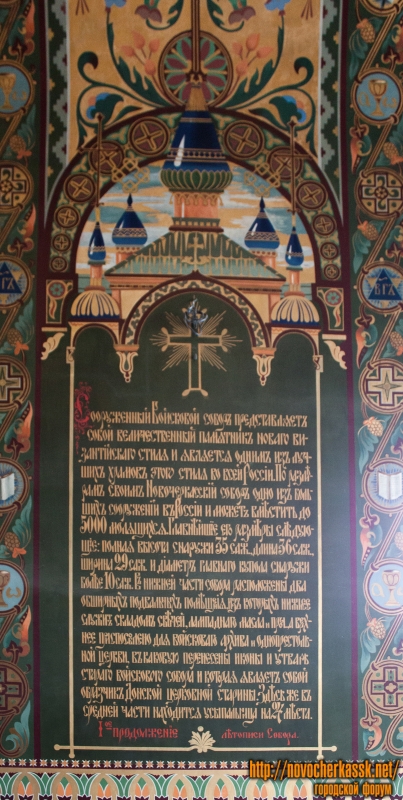 Сооруженный Войсковой соборъ представляетъ
собой величественный памятникъ новаго ви-
зантiйскаго стиля и является однимъ изъ луч-
шихъ храмовъ этого стиля во всей Россiи. По размѣ-
рамъ своимъ Новочеркасскiй соборъ одно изъ боль-
шихъ сооруженiй въ Россiи и можетъ вмѣстить до
5000 молящихся. Главнѣйшiе его размѣры слѣдую-
щiе: полная высота снаружи 35 саж., длина 36 саж.,
ширина 29 саж. и дiаметръ главнаго купола снаружи
болѣе 10 саж. Въ нижней части собора расположены два
обширныхъ подвальныхъ помѣщенiя, изъ которыхъ нижнее
служитъ складомъ свѣчей, лампаднаго масла и проч., а верх-
нее приспособлено для войсковаго архива и однопрестоль-
ной церкви, въ каковую перенесена иконы и утварь
стараго войскового собора и которая являетъ собой
образчикъ Донской церковной старины. Здѣсь же въ
средней части находится усыпальница на 4 мѣста.
1ое продолженiе лѣтописи Собора.
http://novocherkassk.net/
городской форум